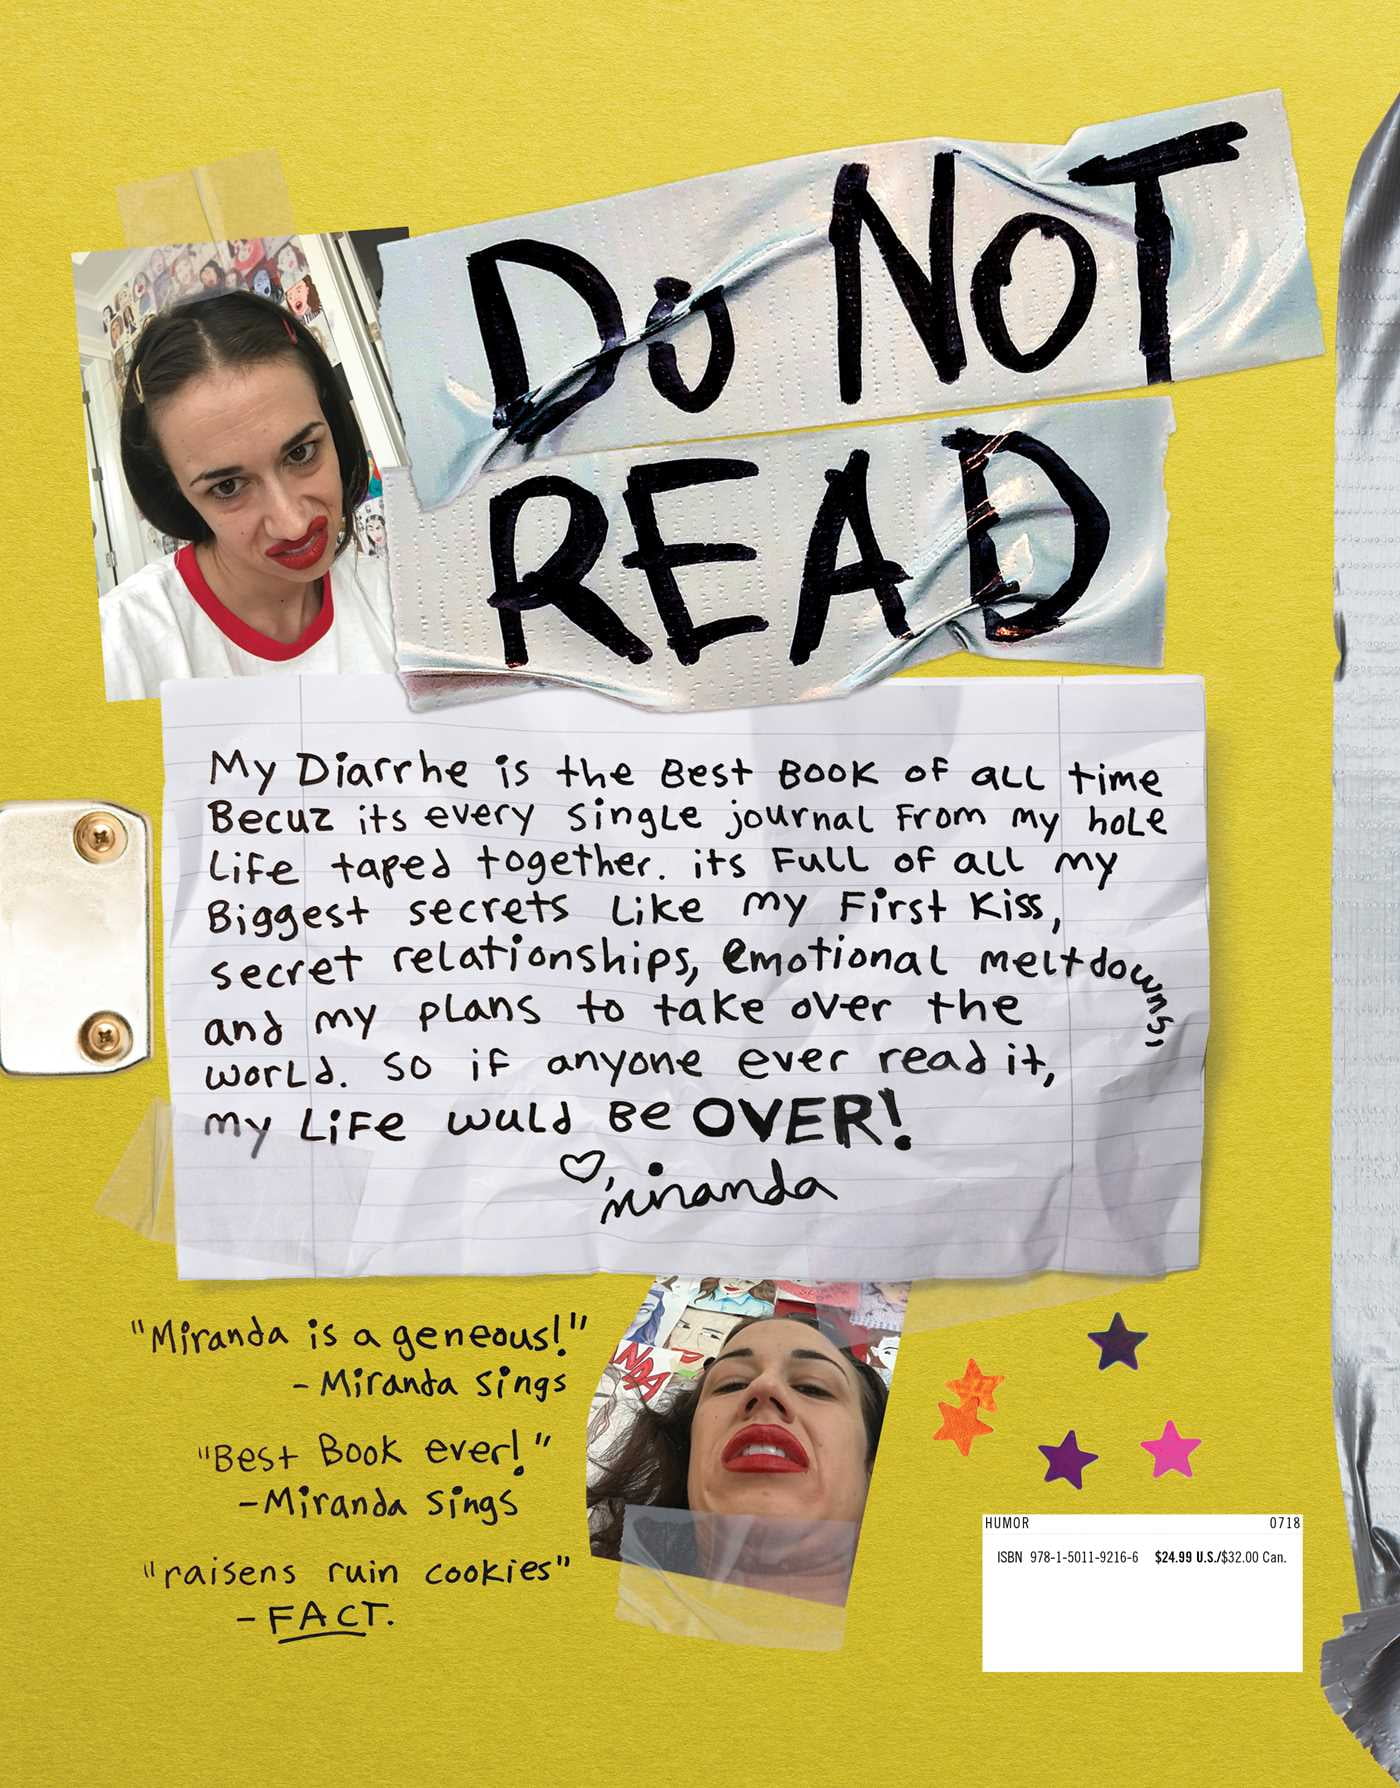 DO NOT
READ
My Diarrhe is the Best Book of all time
Becuz its every single journal From my hole
Life taped together. its Full of all my
Biggest secrets Like my First Kiss,
secret relationships, emotional meltdowns,
and my plans to take over the
world. so if anyone ever read it,
my Life wuld Be OVER!
♡, miranda
"Miranda is a geneous!"
- Miranda Sings
"Best Book ever!"
- Miranda Sings
"raisens ruin cookies"
- FACT.
NDA
HUMOR 0718
ISBN 978-1-5011-9216-6 $24.99 U.S./$32.00 Can.